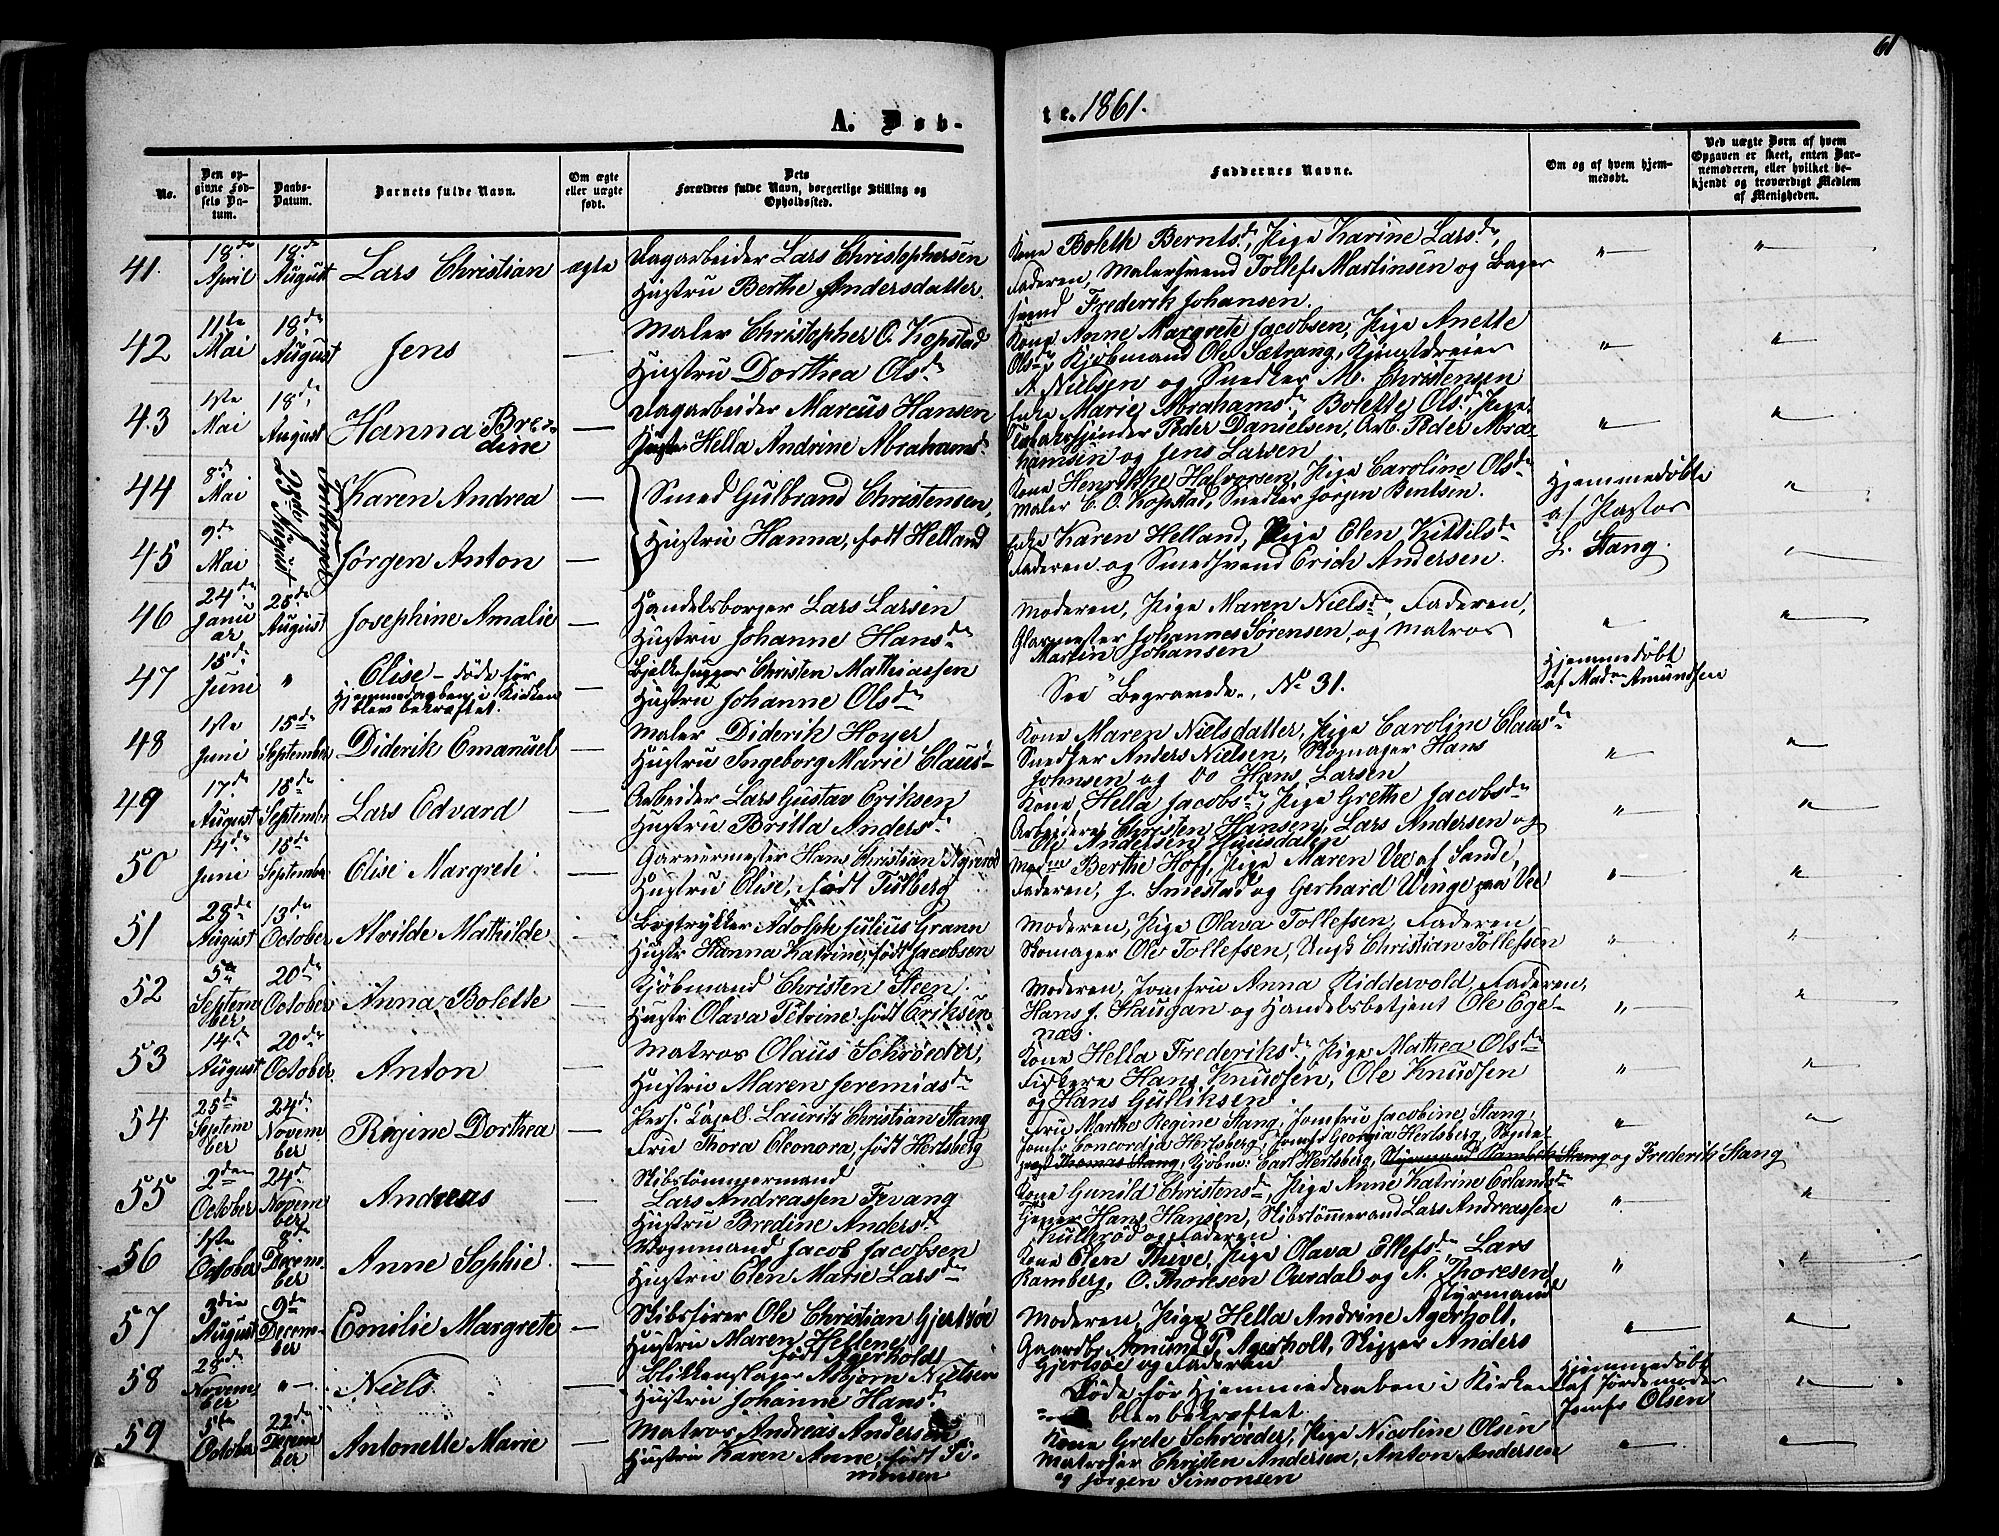 61
A. Døb-
te. 1861.
No.
Den opgivne Fødsels Datum.
Daabs-Datum.
Barnets fulde Navn.
Om ægte eller uægte født.
Dets Forældres fulde Navn, borgerlige Stilling og Opholdssted.
Faddernes Navne.
Om og af hvem hjemmedøbt.
Ved uægte Børn af hvem Opgaven er skeet, enten Barnemoderen, eller hvilket bekjendt og troværdigt Medlem af Menigheden.
41. 18de April 18de August Lars Christian ægte Dagarbeider Lars Christophersen
Hustru Berthe Andersdatter.
Kone Boleth Berntsd., Pige Karine Larsd.,
Faderen, Malersvend Tollef Martinsen og Bager
svend Frederik Johansen.
42 11te Mai 18de August Jens — Maler Christopher O. Kopstad
Hustru Dorthea Olsdr
Kone Anne Margrete Jacobsen, Pige Anette
Olsdr, Kjøbmand Ole Sætrang,
A. Nielsen og Snedker M. Christensen
43 1ste Mai 18de August Hanna Bredine — Dagarbeider Marcus Hansen
Hustr Hella Andrine Abrahamsd.
Enke Marie Abrahamsd., Bolette Olsd., Pige
Peder Danielsen, Arb. Peder Abra-
hamsen og Jens Larsen
44 8de Mai 25de August Karen Andrea — Smed Gulbrand Christensen,
Hustru Hanna, født Helland
Kone Henrikke Halvorsen, Pige Caroline Olsdr
Maler C. O. Kopstad, Snedker Jørgen Bentsen.
Hjemmedøbte
af Pastor
L. Stang.
45 9de Mai Jørgen Anton —
Enke Karen Helland, Pige Elen Kittilsdr
Faderen og Smedsvend Erich Andersen.
46 24de Januar 25de August Josephine Amalie — Handelsborger Lars Larsen
Hustru Johanne Hansdr
Moderen, Pige Maren Nielsdr, Faderen,
Glarmester Johannes Sørensen og Matros
Martin Johansen
47 15de Juni " Elise – døde før
Hjemmedaaben i Kirken
blev bekræftet.
Bjelkehugger Christen Mathiassen
Hustru Johanne Olsdr
See "Begravede", No 31.
Hjemmedøbt
af Madm Amundsen
48 1ste Juni 15de September Diderik Emanuel — Maler Diderik Hoyer
Hustru Ingeborg Marie Claus-
Kone Maren Nielsdatter, Pige Caroline Clausdr
Snedker Anders Nielsen, Skomager Hans
Johnsen og do Hans Larsen
49 17de August 15de September Lars Edvard — Arbeider Lars Gustav Eriksen
Hustru Britta Andersdr
Kone Hella Jacobsdr, Pige Grethe Jacobsdr
Arbeidere Christen Hansen, Lars Andersen og
Ole Andersen Huusdalen
50 14de Juni 15de September Elise Margrete — Garvermester Hans Christian
Hustru Elise, født Tidberg
Madm Berthe Hoff, Pige Maren Vee af Sande,
Faderen, J. Smestad og Gerhard Winge paa Vee
51 28de August 13de October Alvilde Mathilde Bogtrykker Adolph Julius Grann
Hustr Hanna Katrine, født Jacobsen
Moderen, Pige Olava Tollefsen, Faderen
Skomager Ole Tollefsen, Ungk Christian Tollefsen
52 5te September 20de October Anna Bolette — Kjøbmand Christen Steen,
Hustr Olava Petrine født Eriksen
Moderen, Jomfru Anna Riddervold, Faderen,
Hans J. Haugan og Handelsbetjent Ole Ege-
næs.
53 14de August 20de October Anton — Matros Olaus Schrøeder,
Hustru Maren Jeremiasdr
Kone Hella Frederiksdr, Pige Mathea Olsdr
Fiskere Hans Knudsen, Ole Knudsen
og Hans Gulliksen
54 25de September 24de November Regine Dorthea — Pers. Capell. Lauritz Christian Stang
Fru Thora Eleonora, født Hertsberg
Fru Marthe Regine Stang, Jomfru Jacobine Stang,
Jomfr Concordia Hertsberg, Jomfr Georgia Hertsberg, Sogne-
Thomas Stang, Kjøbm: Carl Hertsberg, Stang og Frederik Stang
55 2den October 24de November Andreas — Skibstømmermand
Lars Andreassen Fevang
Hustru Bredine Andersdr
Kone Gunild Christensdr, Pige Anne Katrine Erlandsdr
Hans Hansen, Skibstømmermand Lars Andreassen
Kullerød og Faderen.
56 1ste October 8de December Anne Sophie. — Vognmand Jacob Jacobsen
Hustru Elen Marie Larsdr
Kone Elen Theve, Pige Olava Ellefsdr, Lars
Ramberg, O. Thoresen Overdal og A. Thoresen
Styrmand
57 3die August 9de December Emilie Margrete — Skibsfører Ole Christian Gjertsøe
Hustru Maren Hellene
født Agerholdt
Moderen, Pige Hella Andrine Agerholt,
Gaardbr Amund P. Agerholt, Skipper Anders
Gjertsøe og Faderen
58 28de November " Niels — Blikkenslager Asbjørn Nielsen
Hustru Johanne Hansdr
Døde før Hjemmedaaben i Kirken
blev bekræftet.
Hjemmedøbt
af Jordemoder
Jomfr Olsen
59 5te October 22de December Antonette Marie — Matros Andreas Andersen
Hustru Karen Anne, født Si-
monsen
Kone Grete Schrøeder, Pige Nicoline Olsen
Matroser Christen Andersen, Anton Andersen
og Jørgen Simonsen